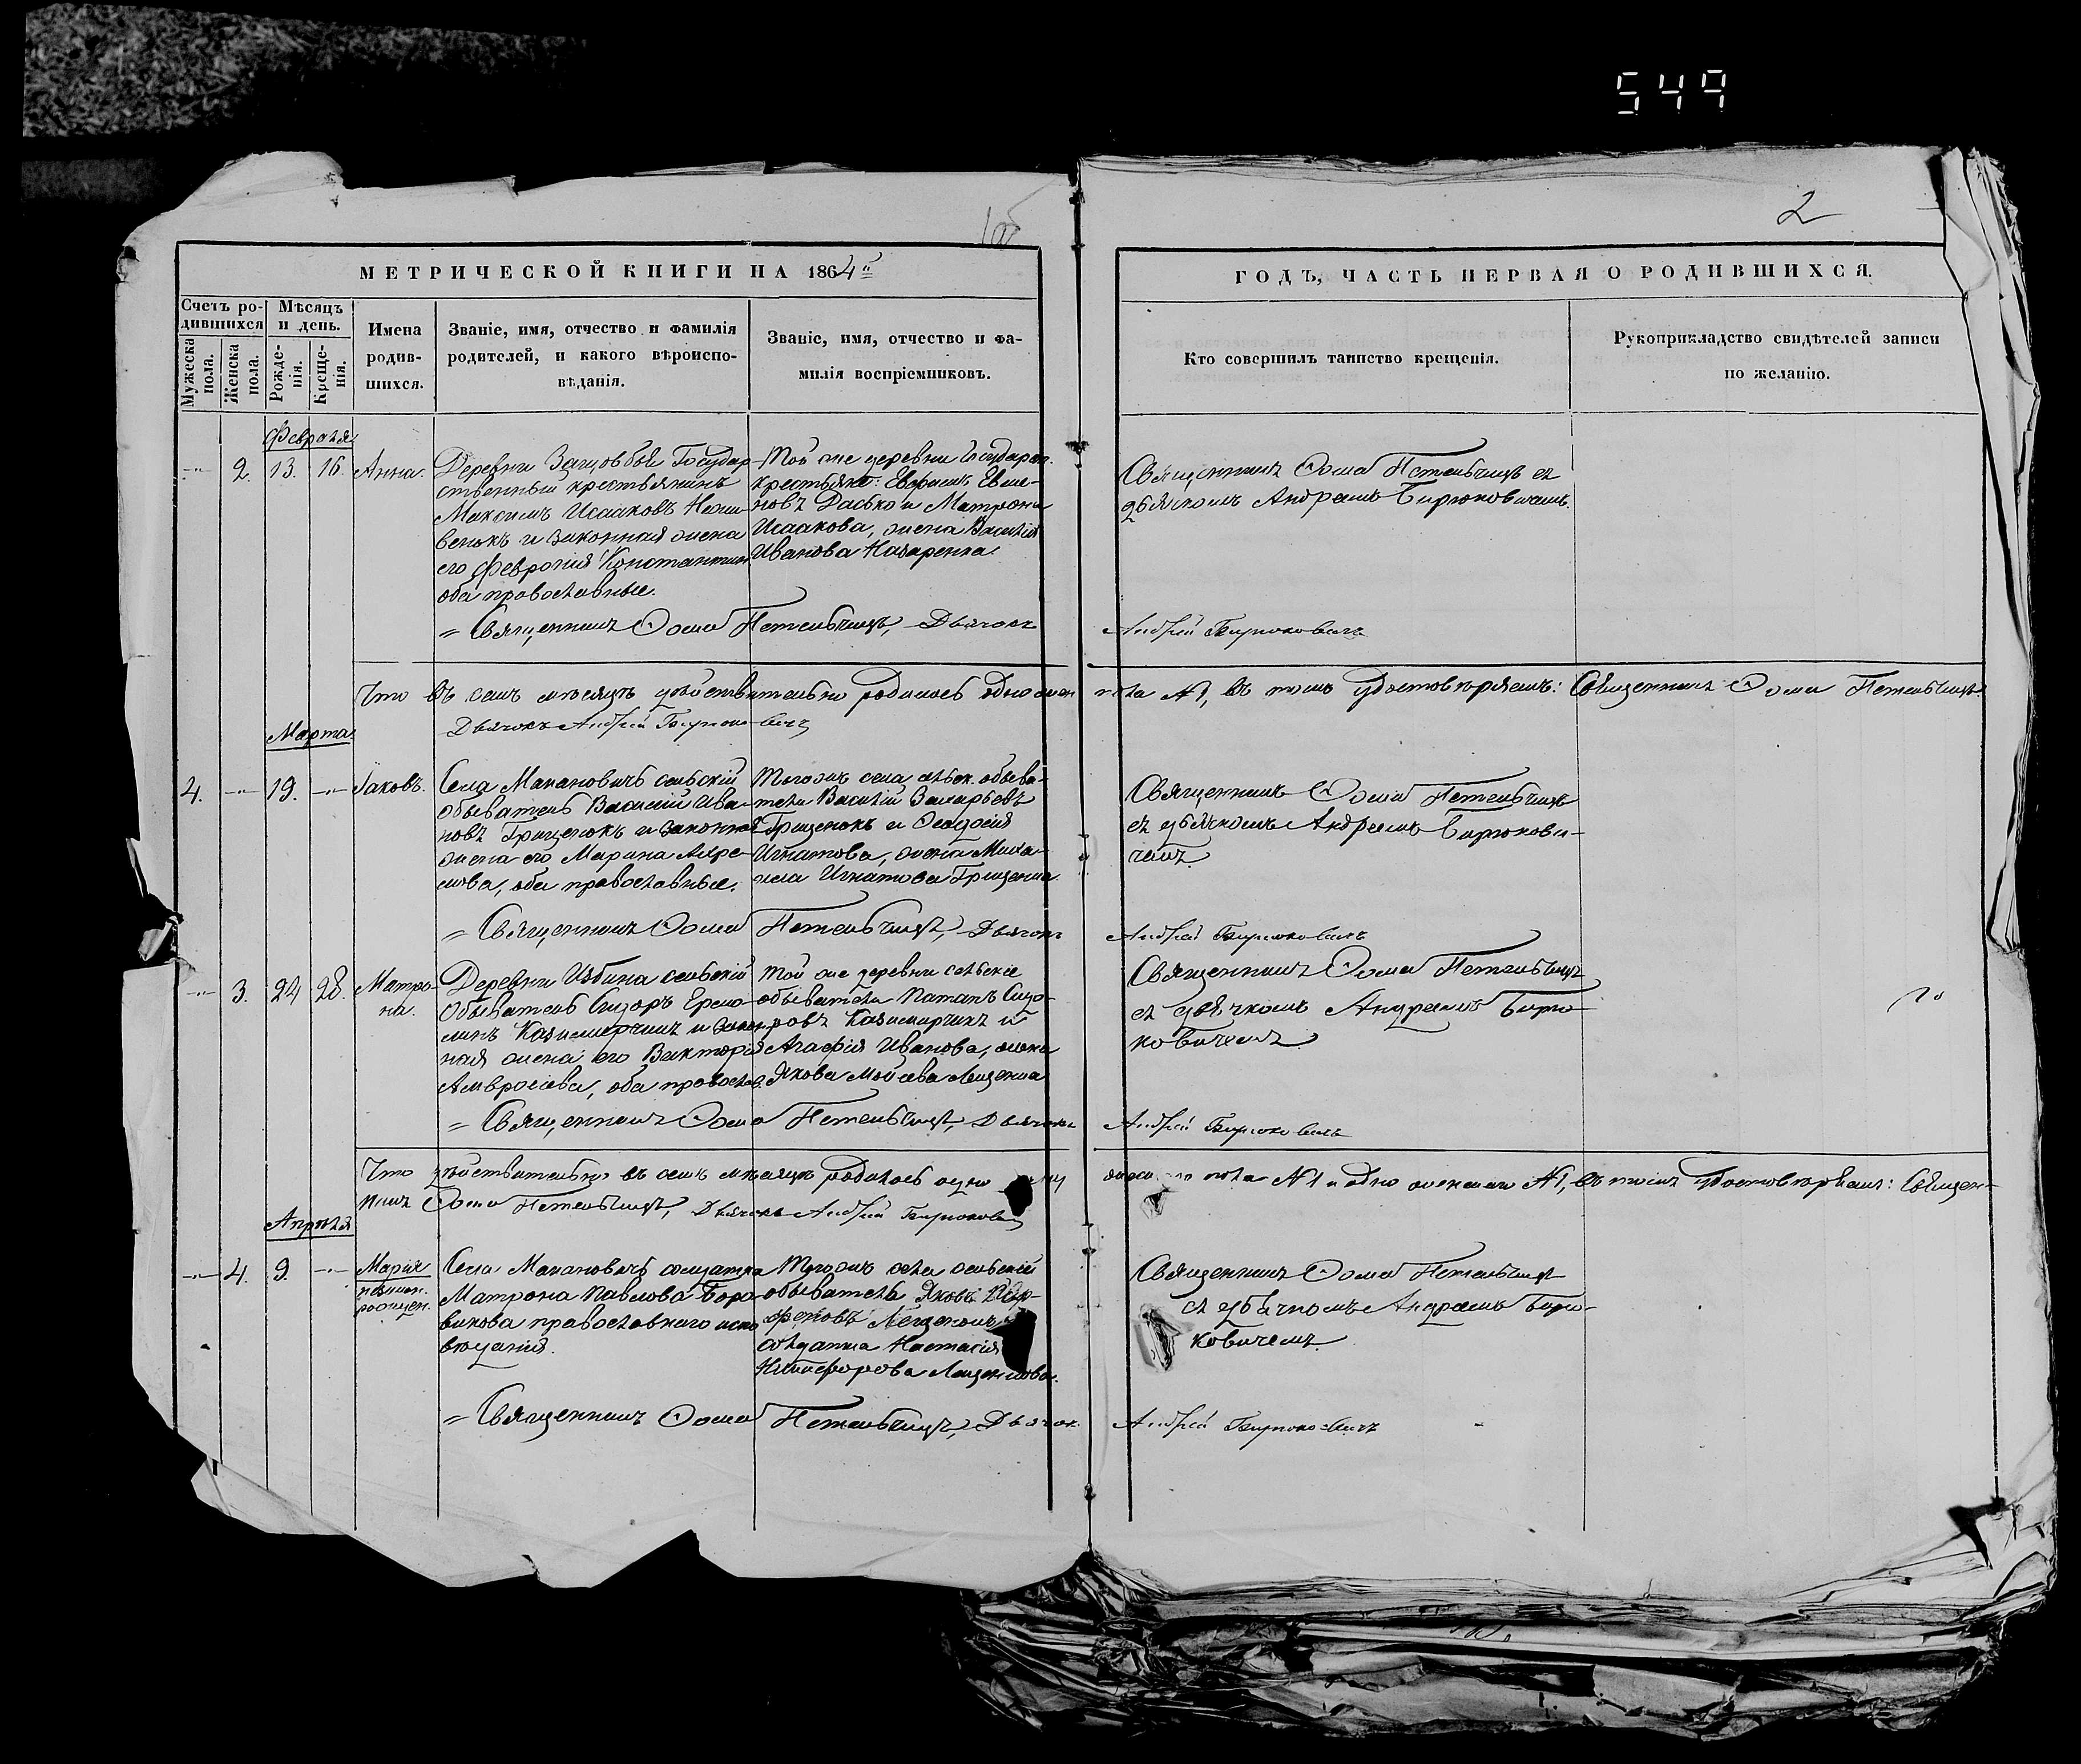 549
2
МЕТРИЧЕСКОЙ КНИГИ НА 1864
ГОДЪ, ЧАСТЬ ПЕРВАЯ О РОДИВШИХСЯ.
Счетъ ро-
дившихся
Мужеска пола.
Женска пола.
Мѣсяцъ
и день.
Рожде-
нія.
Креще-
нія.
Имена
родив-
шихся.
Званіе, имя, отчество и фамилія
родителей, и какого вѣроиспо-
вѣданія.
Званіе, имя, отчество и фа-
милія воспріемниковъ.
Кто совершилъ таинство крещенія.
Рукоприкладство свидѣтелей записи
по желанію.
Февраля
2. 13. 16. Анна.
Деревни Государ-
ственный крестьянинъ
Максимъ Исааковъ
и законная жена
его Феврония Константин
оба православные.
Той же деревни Государст.
крестьяне:
и Матрона
Исаакова, жена Василія
Иванова Назаренка.
Священникъ Фома съ
дьячкомъ Андреемъ Бирюковичемъ.
Священникъ Фома Дьячокъ
Андрей Бирюковичъ
Что въ семъ мѣсяцѣ дѣйствительно родилось одно жен пола №1, въ томъ удостовѣряемъ: Священникъ Фома
Дьячокъ Андрей Бирюковичъ
Марта
4. 19. Іаковъ.
Села Макановичъ сельскій
обыватель Василій Ива-
новъ Грищенокъ и законная
жена его Марина
оба православные.
Тогожъ села сельск. обыва-
тели Василій Захарьевъ
Грищенокъ и Ѳеодосія
Игнатова, жена Миха-
ила Игнатова Грищенка.
Священникъ Фома
съ дьячкомъ Андреемъ Бирюкови-
чемъ.
Священникъ Фома Дьячокъ
Андрей Бирюковичъ
3. 24 28. Матро-
на.
Деревни Избина сельскій
обыватель Сидоръ Ермо-
Казимирчикъ и закон-
ная жена его Викторія
Амвросіева, оба православ.
Той же деревни сельскіе
обыватели Патапъ Сидо-
ровъ Казимирчикъ и
Агафія Иванова, жена
Якова Моисева Лещенка
Священникъ Фома
съ дьячкомъ Андреемъ Бирю-
ковичемъ
Священникъ Фома Дьячокъ
Андрей Бирюковичъ
Что дѣйствительно въ семъ мѣсяцѣ родилось одно пола №1 и одно женскаго №1, въ томъ удостовѣряемъ: Священ-
никъ Фома Дьячокъ Андрей Бирюковичъ
Апрѣля
4. 9. Марія
незакон.
рожден.
Села Макановичъ солдатка
Матрона Павлова
православнаго испо
вѣданія.
Тогожъ села сельскій
обыватель Яковъ
солдатка Настасія
Никифорова Лещенкова.
Священникъ Фома
съ дьячкомъ Андреемъ Бирю-
ковичемъ
Священникъ Фома Дьячок
Андрей Бирюковичъ